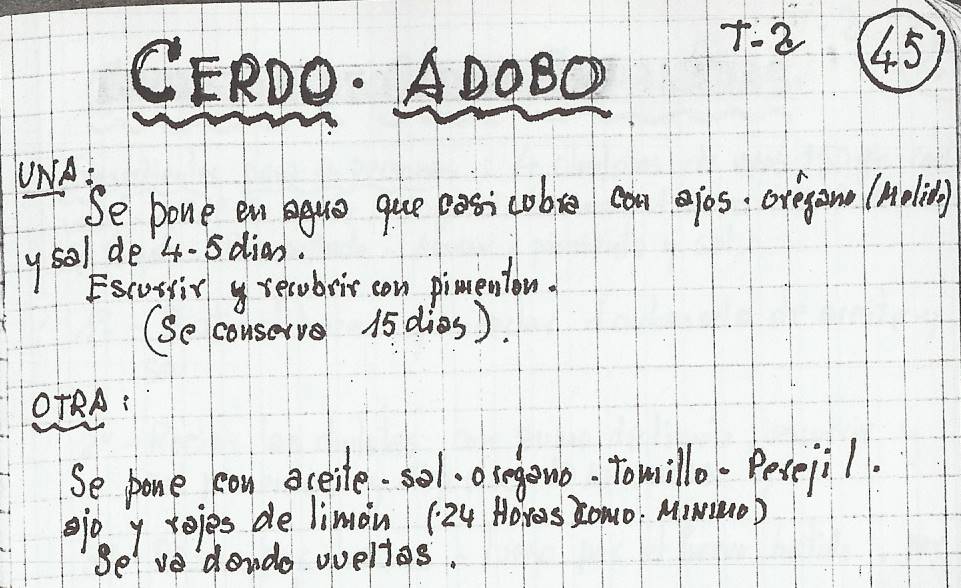 T-2 45
CERDO. ADOBO
UNA:
Se pone en agua que casi cubra con ajos. orégano (Molido)
y sal de 4-5 dias.
Escurrir y recubrir con pimenton.
(Se conserva 15 dias).
OTRA:
Se pone con aceite - sal. orégano - Tomillo - Perejil.
ajo y rajas de limón (24 Horas) COMO. MINIMO)
Se va dando vueltas.